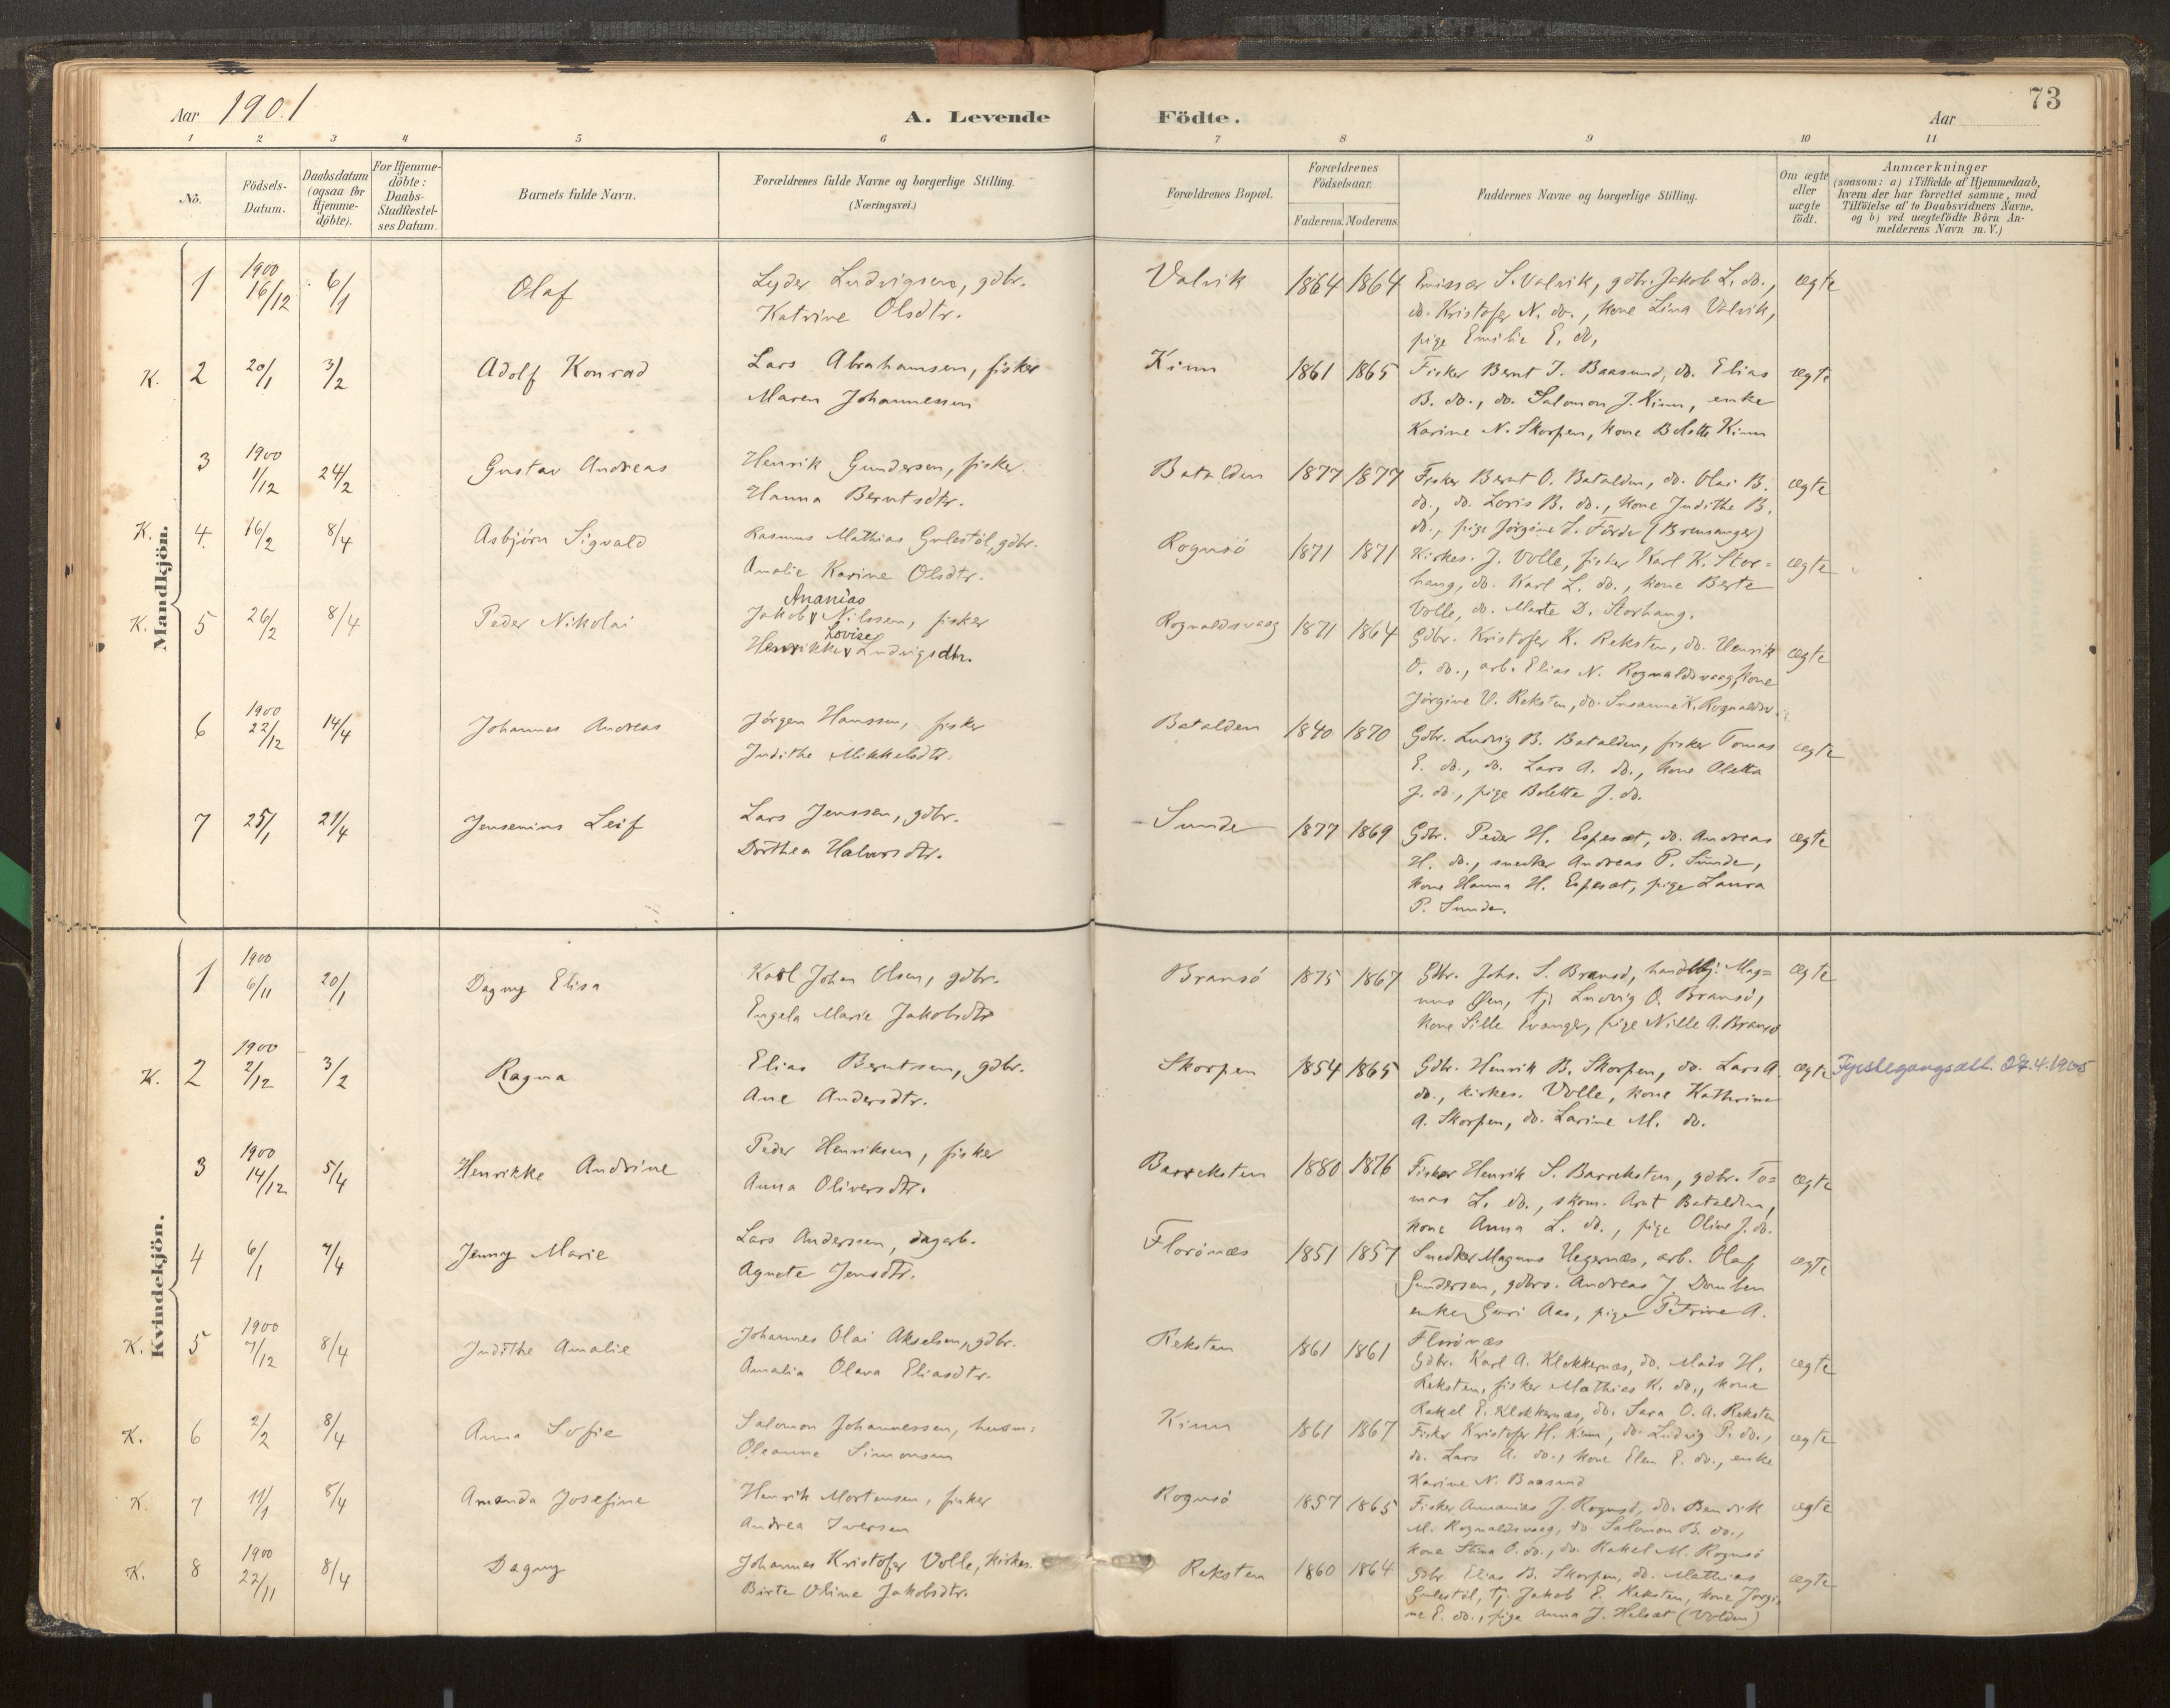 73
Aar 1901
A. Levende Födte.
Aar
1 2 3 4 5 6 7 8 9 10 11
No.
Födsels-Datum.
Daabsdatum (ogsaa for Hjemme-döbte).
For Hjemme-döbte: Daabs-Stadfæstel-ses Datum.
Barnets fulde Navn.
Forældrenes fulde Navne og borgerlige Stilling. (Næringsvei.)
Forældrenes Bopæl.
Forældrenes Födselsaar.
Faderens. Moderens.
Faddernes Navne og borgerlige Stilling.
Om ægte eller uægte födt.
Anmærkninger
(saasom: a) i Tilfælde af Hjemmedaab,
hvem der har forrettet samme, med
Tilföielse af to Daabsvidners Navne,
og b) ved uægtefödte Börn An-
melderens Navn m. V.)
Mandkjön.
1 1900 16/12 6/1 Olaf Lyder Ludvigsen, gdbr. Valvik 1864 1864 Emissær S. Valvik, gdbr. Jakob L. do., ægte
Katrine Olsdtr. do. Kristofer N. do., kone Lina Valvik,
pige Emilie E. do.
K. 2 20/1 3/2 Adolf Konrad Lars Abrahamsen, fisker Kinn 1861 1865 Fisker Bernt J. Baasund, do. Elias ægte
Maren Johannessen B. do., do. Salomon J. Kinn, enke
Karine N. Skorpen, kone Bolette Kinn
3 1900 1/12 24/2 Gustav Andreas Henrik Gundersen, fisker. Batalden 1877 1877 Fisker Bernt O. Batalden, do. Olai B. ægte
Hanna Berntsdtr. do., do. Loris B. do., kone Judithe B.
do., pige Jørgine S. Förde (Bremanger)
K. 4. 16/2 8/4 Asbjörn Sigvald Rasmus Mathias Gulestöl, gdbr. Rognsö 1871 1871 Kirkes. J. Volle, fisker Karl K. Stor= ægte
Amalie Karine Olsdtr. haug, do. Karl L. do., kone Berte
Volle, do. Marte D. Storhaug.
Ananias
K. 5 26/2 8/4 Peder Nikolai Jakob Nilssen, fisker Rognaldsvaag 1871 1864 Gdbr. Kristofer K. Reksten, do. Henrik ægte
Lovise
Henrikke Ludvigsdtr. O. do., arb. Elias N. Rognaldsvaag, kone
Jörgine H. Reksten, do. Susanne K. Rognaldsv.
6 1900 22/12 14/4 Johannes Andreas Jörgen Hanssen, fisker Batalden 1840 1870 Gdbr. Ludvig B. Batalden, fisker Tomas ægte
Judithe Mikkelsdtr. E. do., do. Lars A. do., kone Oletta
J. do., pige Bolette J. do.
7 25/1 21/4 Jensenius Leif Lars Jenssen, gdbr. Sunde 1877 1869 Gdbr. Peder H. Espeset, do. Andreas ægte
Dorthea Halvorsdtr. H. do., snedker Andreas P. Sunde,
kone Hanna H. Espeset, pige Laura
P. Sunde.
Kvindekjön.
1 1900 6/11 20/1 Dagny Elisa Karl Johan Olsen, gdbr. Bransö 1875 1867 Gdbr. Johs. S. Bransö, handelsbj. Mag= ægte
Engela Marie Jakobsdtr nus Öen, tj. Ludvig O. Bransö,
kone Sille Evanger, pige Nille A. Bransö
K. 2 1900 2/12 3/2 Ragna Elias Berntsen, gdbr. Skorpen 1854 1865 Gdbr. Henrik B. Skorpen, do. Lars A. ægte Fyrstegangsatt. 27.4.1905
Ane Andersdtr. do., kirkes. Volle, kone Kathrine
A. Skorpen, do. Larine M. do.
3 1900 14/12 5/4 Henrikke Andrine Peder Henriksen, fisker Barreksten 1880 1876 Fisker Henrik S. Barreksten, gdbr. To= ægte
Anna Oliversdtr. mas L. do., skom. Arnt Batalden,
kone Anna L. do., pige Oline J. do.
4 6/1 7/4 Jenny Marie Lars Anderssen, dagarb. Florönæs 1851 1857 Snedker Magnus Hegernæs, arb. Olaf ægte
Agnete Jensdtr. Gundersen, gdbrs. Andreas J. Domben
enke Guri Aas, pige Petrine A.
Florönæs
K. 5 1900 7/12 8/4 Judithe Amalie Johannes Olai Akselsen, gdbr. Reksten 1861 1861 Gdbr. Karl A. Klokkernæs, do. Mads H. ægte
Amalia Olava Eliasdtr. Reksten, fisker Mathias K. do., kone
Rakel E. Klokkernæs, do. Sara O. A. Reksten
K. 6 2/2 8/4 Anna Sofie Salomon Johannessen, husm: Kinn 1861 1867 Fisker Kristofer H. Kinn, do. Ludvig P. do., ægte
Oleanne Simonsen do. Lars A. do., kone Elen E. do., enke
Karine N. Baasund
K. 7 11/1 8/4 Amanda Josefine Henrik Mortensen, fisker Rognsö 1857 1865 Fisker Annanias J. Rognsö, do. Bendik ægte
Andrea Iversen M. Rognaldsvaag, do. Salomon B. do.,
kone Stina O. do., do. Rakel M. Rognsö
K. 8 1900 22/11 8/4 Dagny Johannes Kristofer Volle, kirkes. Reksten 1860 1864 Gdbr. Elias B. Skorpen, do. Mathias ægte
Birte Oline Jakobsdtr. Gulestöl, tj. Jakob E. Reksten, kone Jörgi-
ne E. do., pige Anna J. Helset (Volden)